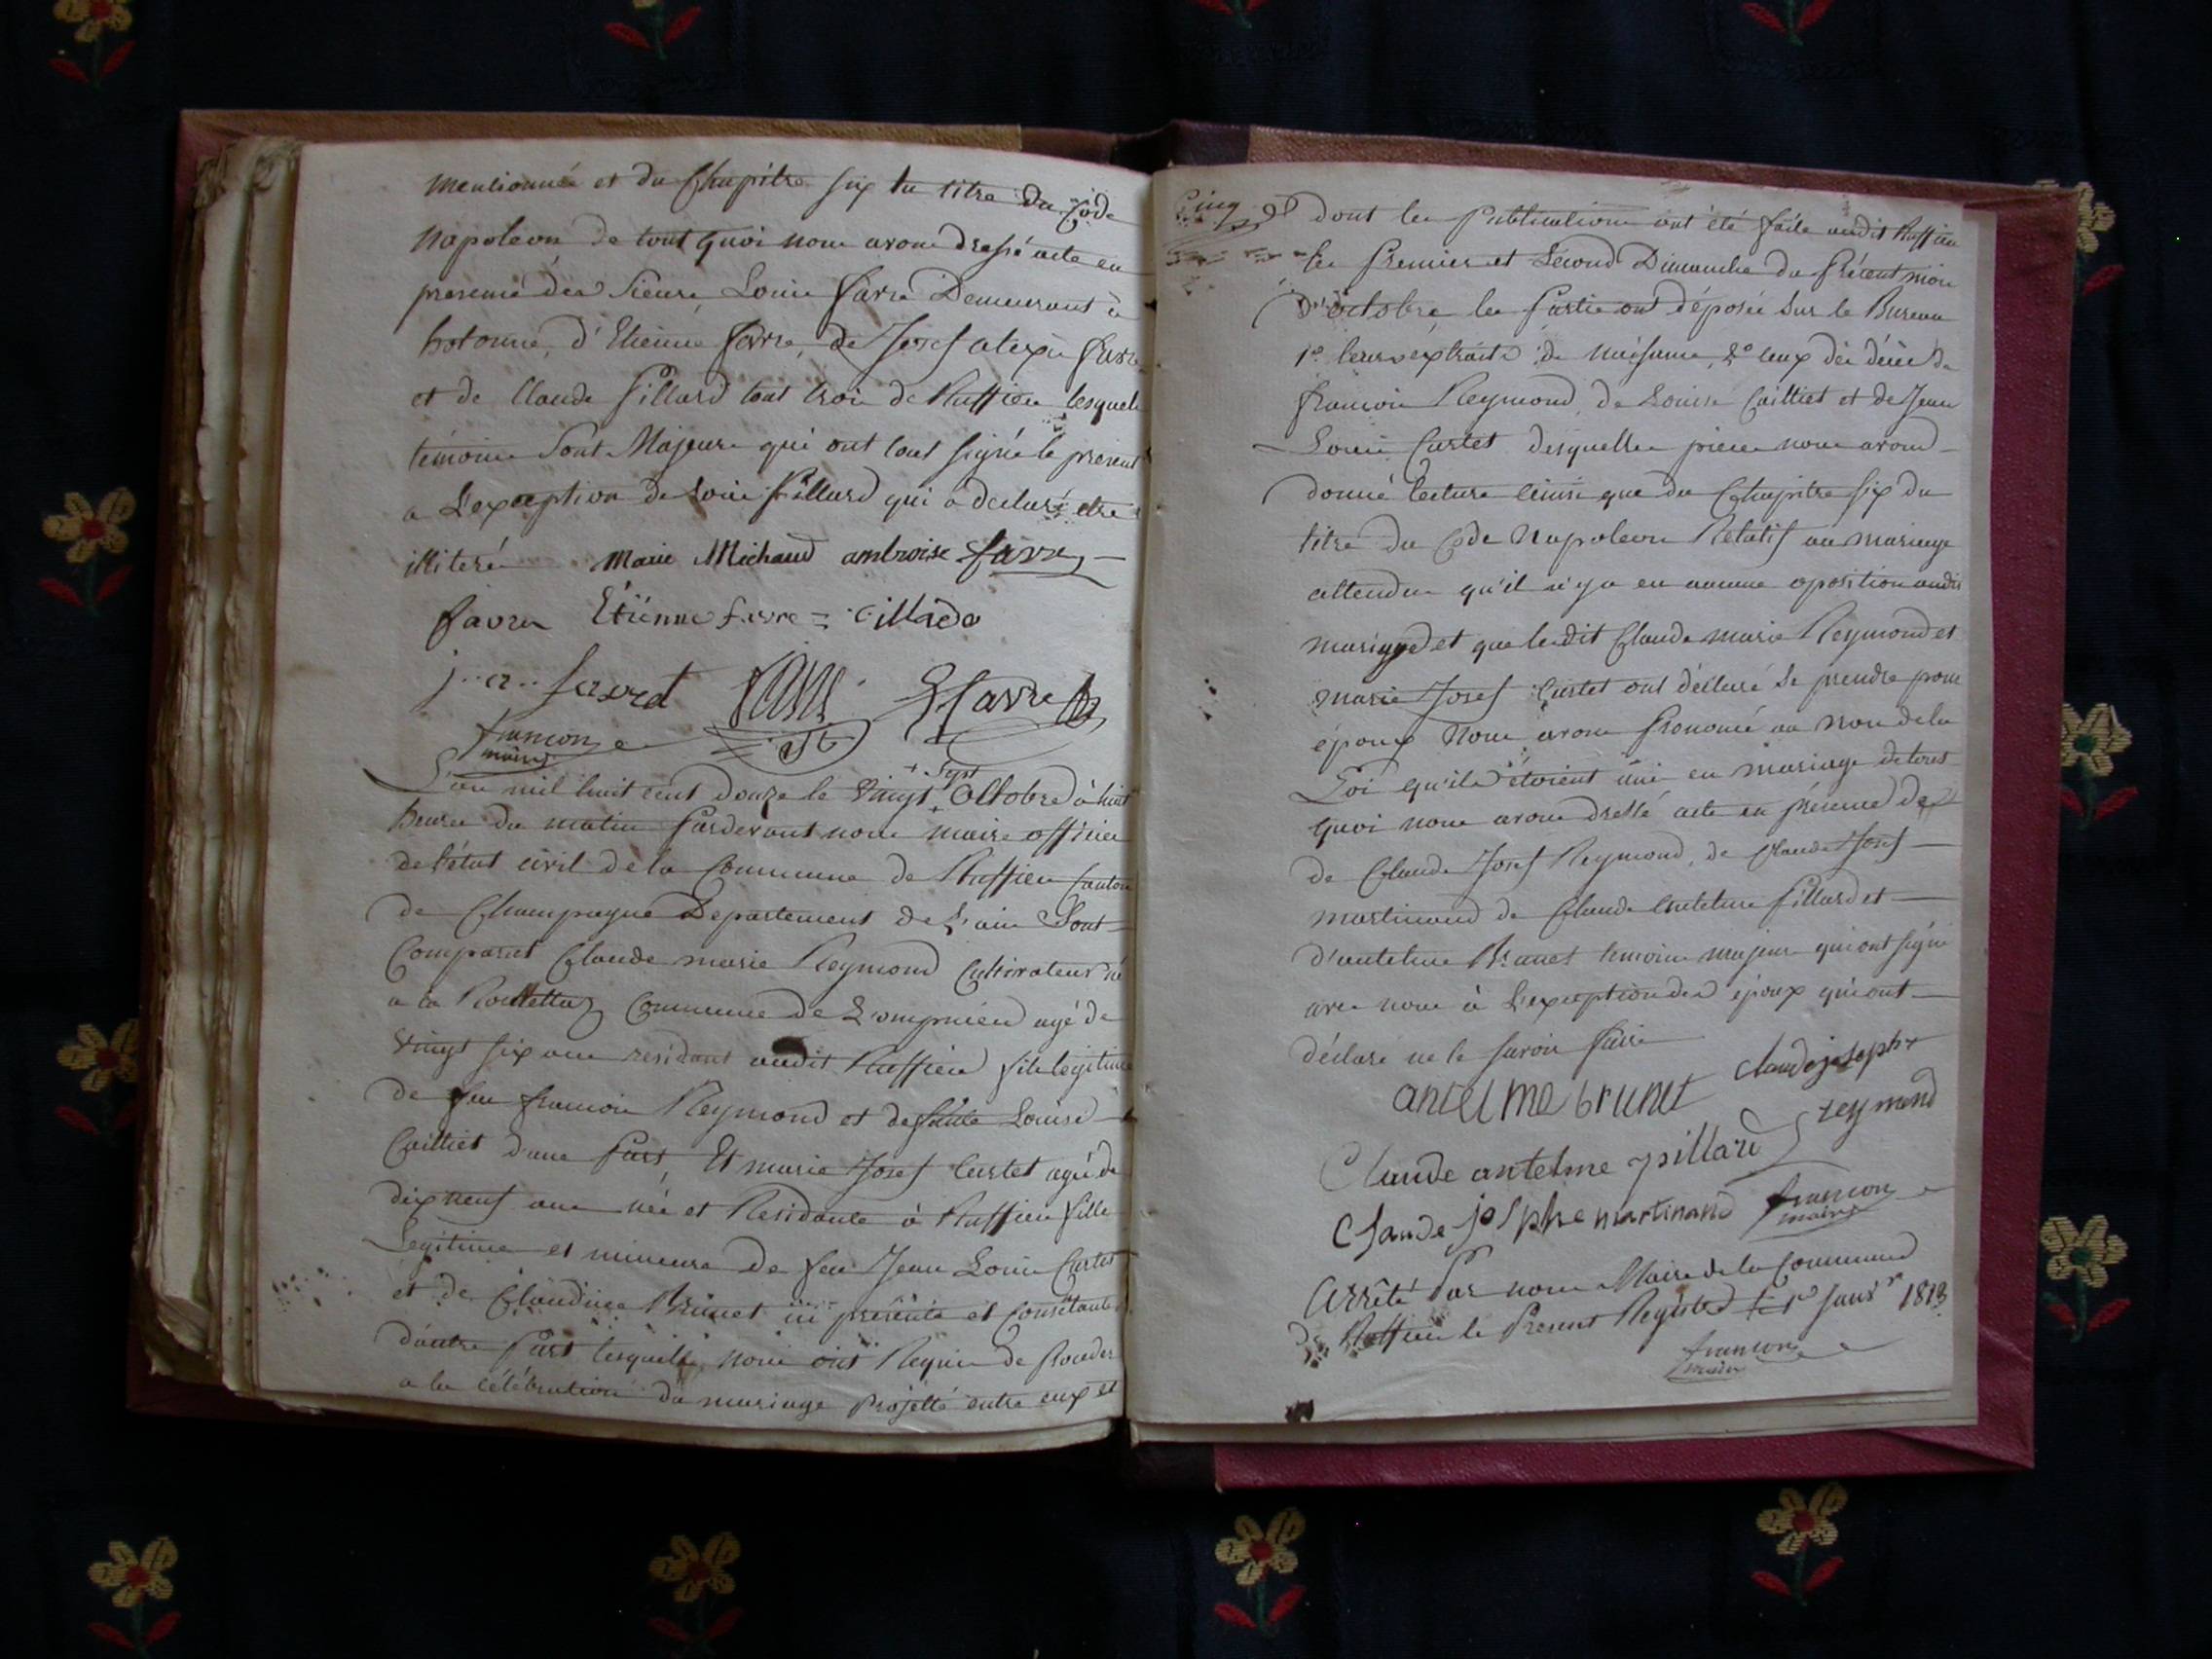 mentionnée et du Chapitre six du titre du Code
Napoléon de tout quoi nous avons dressé acte en
presence des Sieurs Louis favre Demeurant à
hotonne, d'Etienne favre, de Josef alexis favre
et de Claude Pillard tout trois de Ruffieu lesquels
témoins Sont Majeurs qui ont tout signé le present
a L'exception de Louis Pillard qui a declaré etre
illiteré Marie Michaud ambroise favre
favre Etiénne favre = Pillard
j. a. favre favre favre
francon
maire
+ Sept
L'an mil huit cent douze le Vingt + Octobre à huit
heures du matin Pardevant nous maire officier
de l'état civil de la Commune de Ruffieu Canton
de Champagne Departement de L'ain Sont
Comparus Claude marie Reymond Cultivateur né
a la Commune de Lompnieu agé de
Vingt six ans residant audit Ruffieu fils legitime
de feu francois Reymond et de Louise
Cailliet d'une Part, Et marie Josef Curtet agé de
dix neuf ans née et Residante à Ruffieu fille
Legitime et mineure de feu Jean Louis Curtet
et de Claudine Brunet ici présente et Consentante
d'autre Part lesquels nous ont Requis de Proceder
a la célébration du mariage Projetté entre eux et
Cinq dont les Publications ont été faite audit Ruffieu
les Premier et Second Dimanche du Présent mois
D'octobre les Partie ont déposée Sur le Bureau
1° leurs extraits de naissance, 2° ceux des décès de
francois Reymond, de Louise Cailliet et de Jean
Louis Curtet desquelles pieces nous avons
donné lecture ainsi que du Chapitre six du
titre du Code Napoleon Relatif au mariage
attendu qu'il n'y a eu aucune oposition audit
mariage et que ledit Claude marie Reymond et
marie Josef Curtet ont déclaré se prendre pour
époux Nous avons Prononcé au Nom de la
Loi qu'ils étoient uni en mariage de tout
quoi nous avons dressé acte en présence de
de Claude Josef Reymond, de Claude Josef
martinand de Claude Pillard et
d'antelme Brunet temoins majeurs qui ont signé
avec nous à L'exception des époux qui ont
déclaré ne le savoir faire
antelme brunet claude joseph
reymond
Claude antelme pillard
Claude josphe martinand francon
maire
Arrêté Par nous Maire de la Commune
de Ruffieu le Present Registre le 1er Janvr 1813
francon
maire